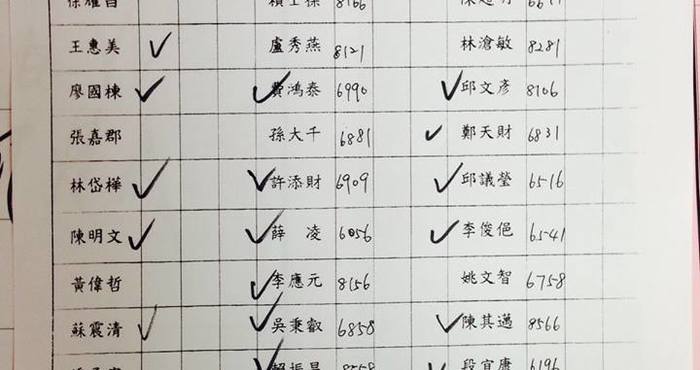 徐耀昌 8166
王惠美 盧秀燕 8121 林滄敏 8281
廖國棟 費鴻泰 6990 邱文彥 8106
張嘉郡 孫大千 6881 鄭天財 6831
林岱樺 許添財 6909 邱議瑩 6516
陳明文 薛 凌 6056 李俊俋 6541
黃偉哲 李應元 8156 姚文智 6758
蘇震清 吳秉叡 6858 陳其邁 8566
賴振昌 8558 段宜康 6196